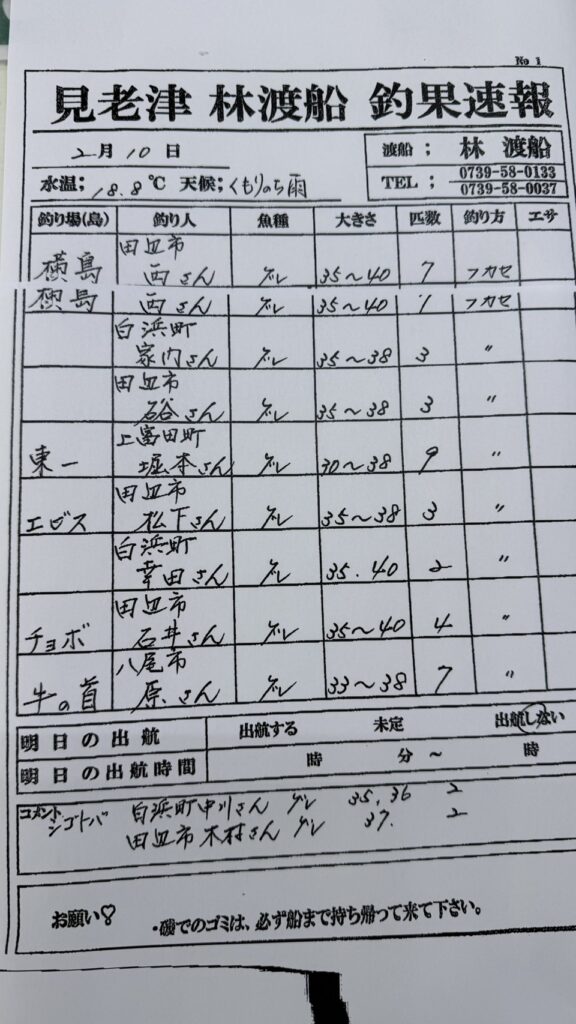 No 1
見老津 林渡船 釣果速報
2月10日
渡船； 林 渡船
水温；18.8℃ 天候；くもりのち雨
TEL； 0739-58-0133
0739-58-0037
釣り場(島) 釣り人 魚種 大きさ 匹数 釣り方 エサ
田辺市
横島 西さん グレ 35～40 7 フカセ
横島 西さん グレ 35～40 フカセ
白浜町
家内さん グレ 35～38 3 〃
田辺市
石谷さん グレ 35～38 3 〃
上富田町
東一 堀本さん グレ 30～38 9 〃
田辺市
エビス 松下さん グレ 35～38 3 〃
白浜町
幸田さん グレ 35.40 2 〃
田辺市
チョボ 石井さん グレ 35～40 4 〃
八尾市
牛の首 原さん グレ 33～38 7 〃
明日の出航 出航する 未定 出航しない
明日の出航時間 時 分～ 時
コメント 白浜町中川さん グレ 35,36 2
シゴトバ 田辺市木村さん グレ 37. 2
お願い♡ ・磯でのゴミは、必ず船まで持ち帰って来て下さい。